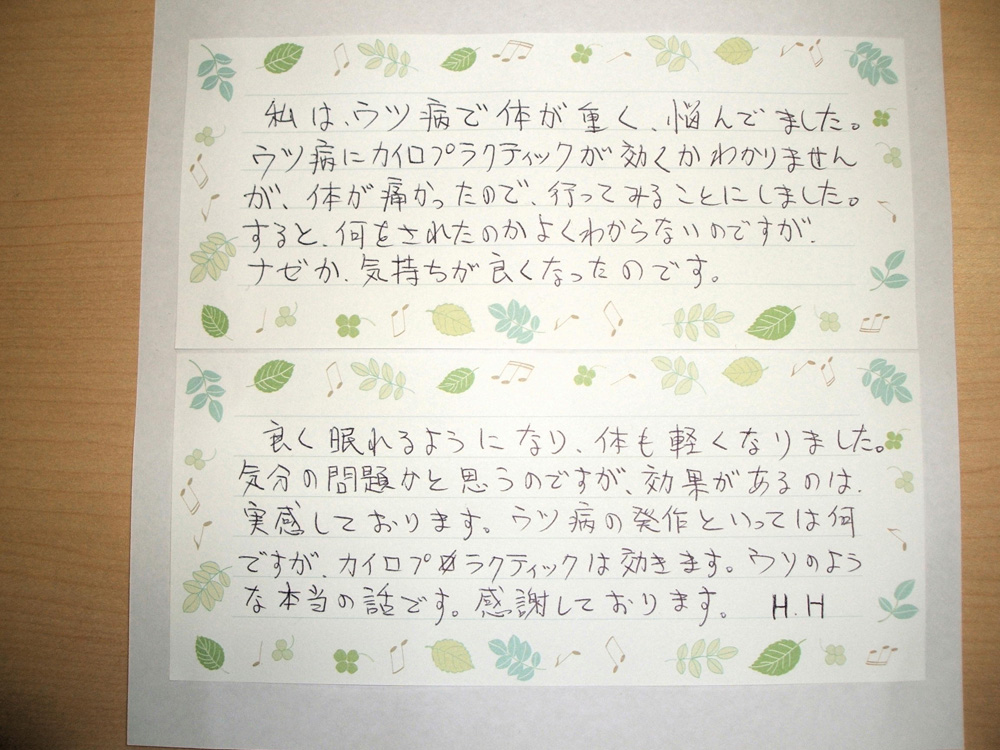 私は、ウツ病で体が重く、悩んでました。
ウツ病にカイロプラクティックが効くかわかりません
が、体が痛かったので、行ってみることにしました。
すると、何をされたのかよくわからないのですが、
ナゼか、気持ちが良くなったのです。
良く眠れるようになり、体も軽くなりました。
気分の問題かと思うのですが、効果があるのは、
実感しております。ウツ病の発作といっては何
ですが、カイロプラクティックは効きます。ウソのよう
な本当の話です。感謝しております。 H.H